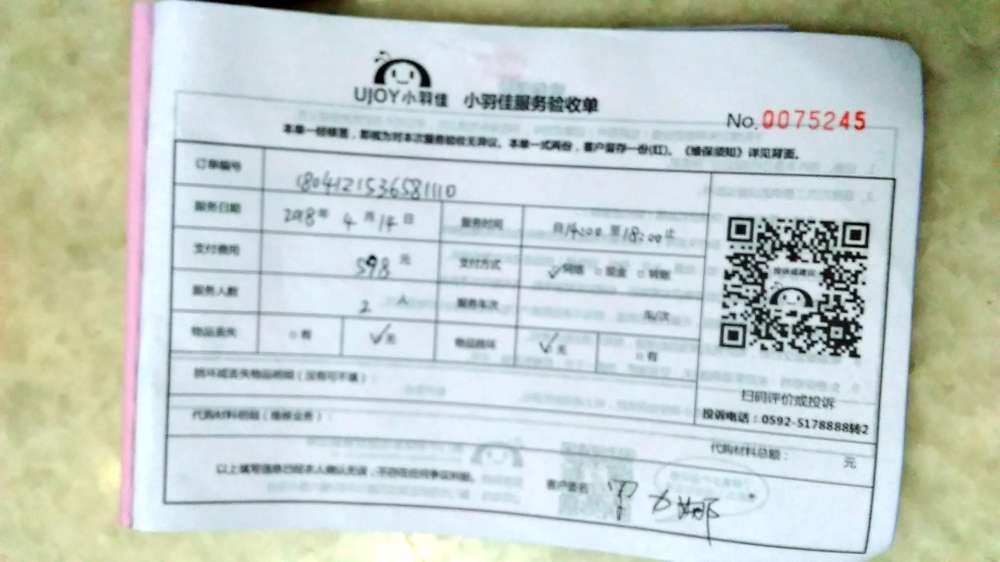 UJOY小羽佳 小羽佳服务验收单
No.0075245
本单一经核签，即视为对本次服务验收无异议。本单一式两份，客户留存一份(红)。《维保须知》详见背面。
订单编号 1804121536581110
服务日期 2018年 4月 14日 服务时间 自14:00至18:00止
支付费用 598 元 支付方式 ✓网络 □现金 □转账
服务人数 2 人 服务车次 车/次
物品丢失 □有 ✓无 物品损坏 ✓无 □有
投诉或建议
扫码评价或投诉
投诉电话：0592-5178888转2
损坏或丢失物品明细（没有可不填）：
代购材料明细（维修业务）： 代购材料总额： 元
以上填写信息已经本人确认无误，不存在任何争议纠纷。 客户签名